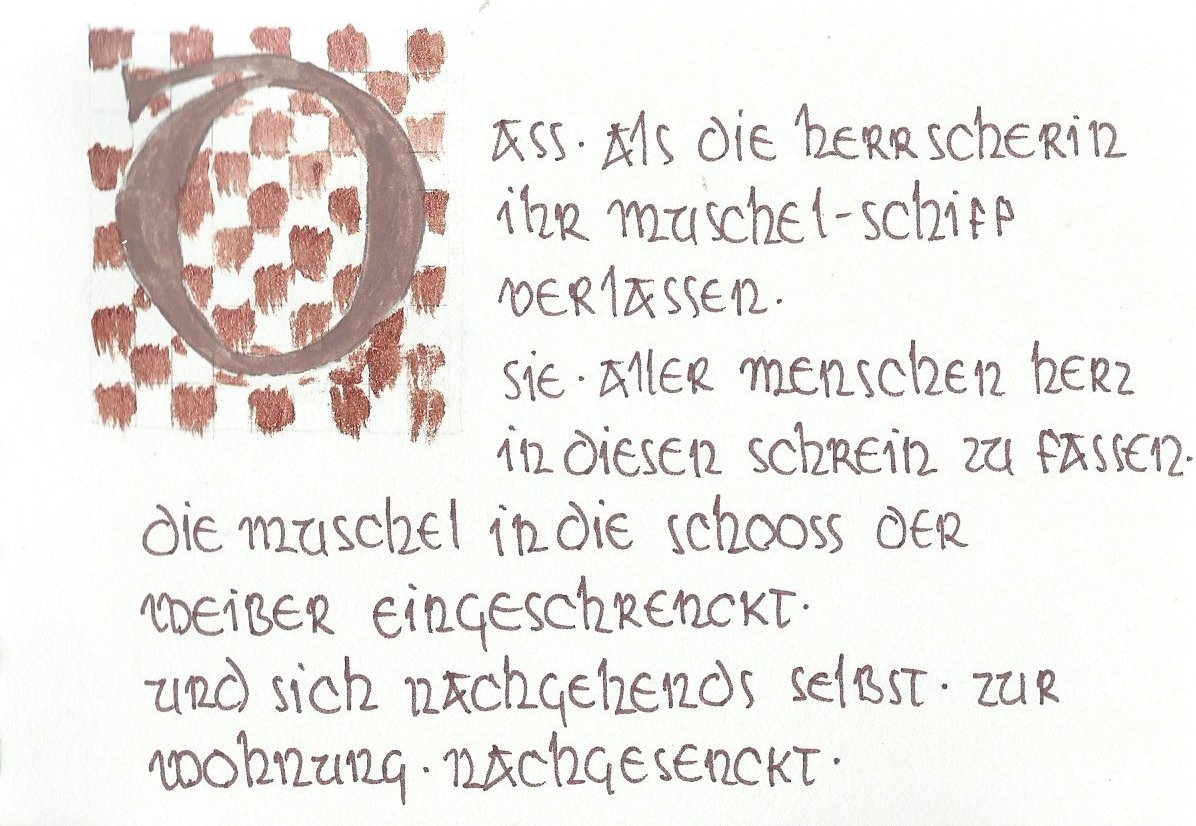 Dass. Als die Herrscherin
ihr Muschel-Schiff
verlassen.
Sie. Aller Menschen Herz
in diesen Schrein zu fassen.
Die Muschel in die Schooss der
Weiber eingeschrenckt.
und sich nachgehends selbst. zur
Wohnung. nachgesenckt.